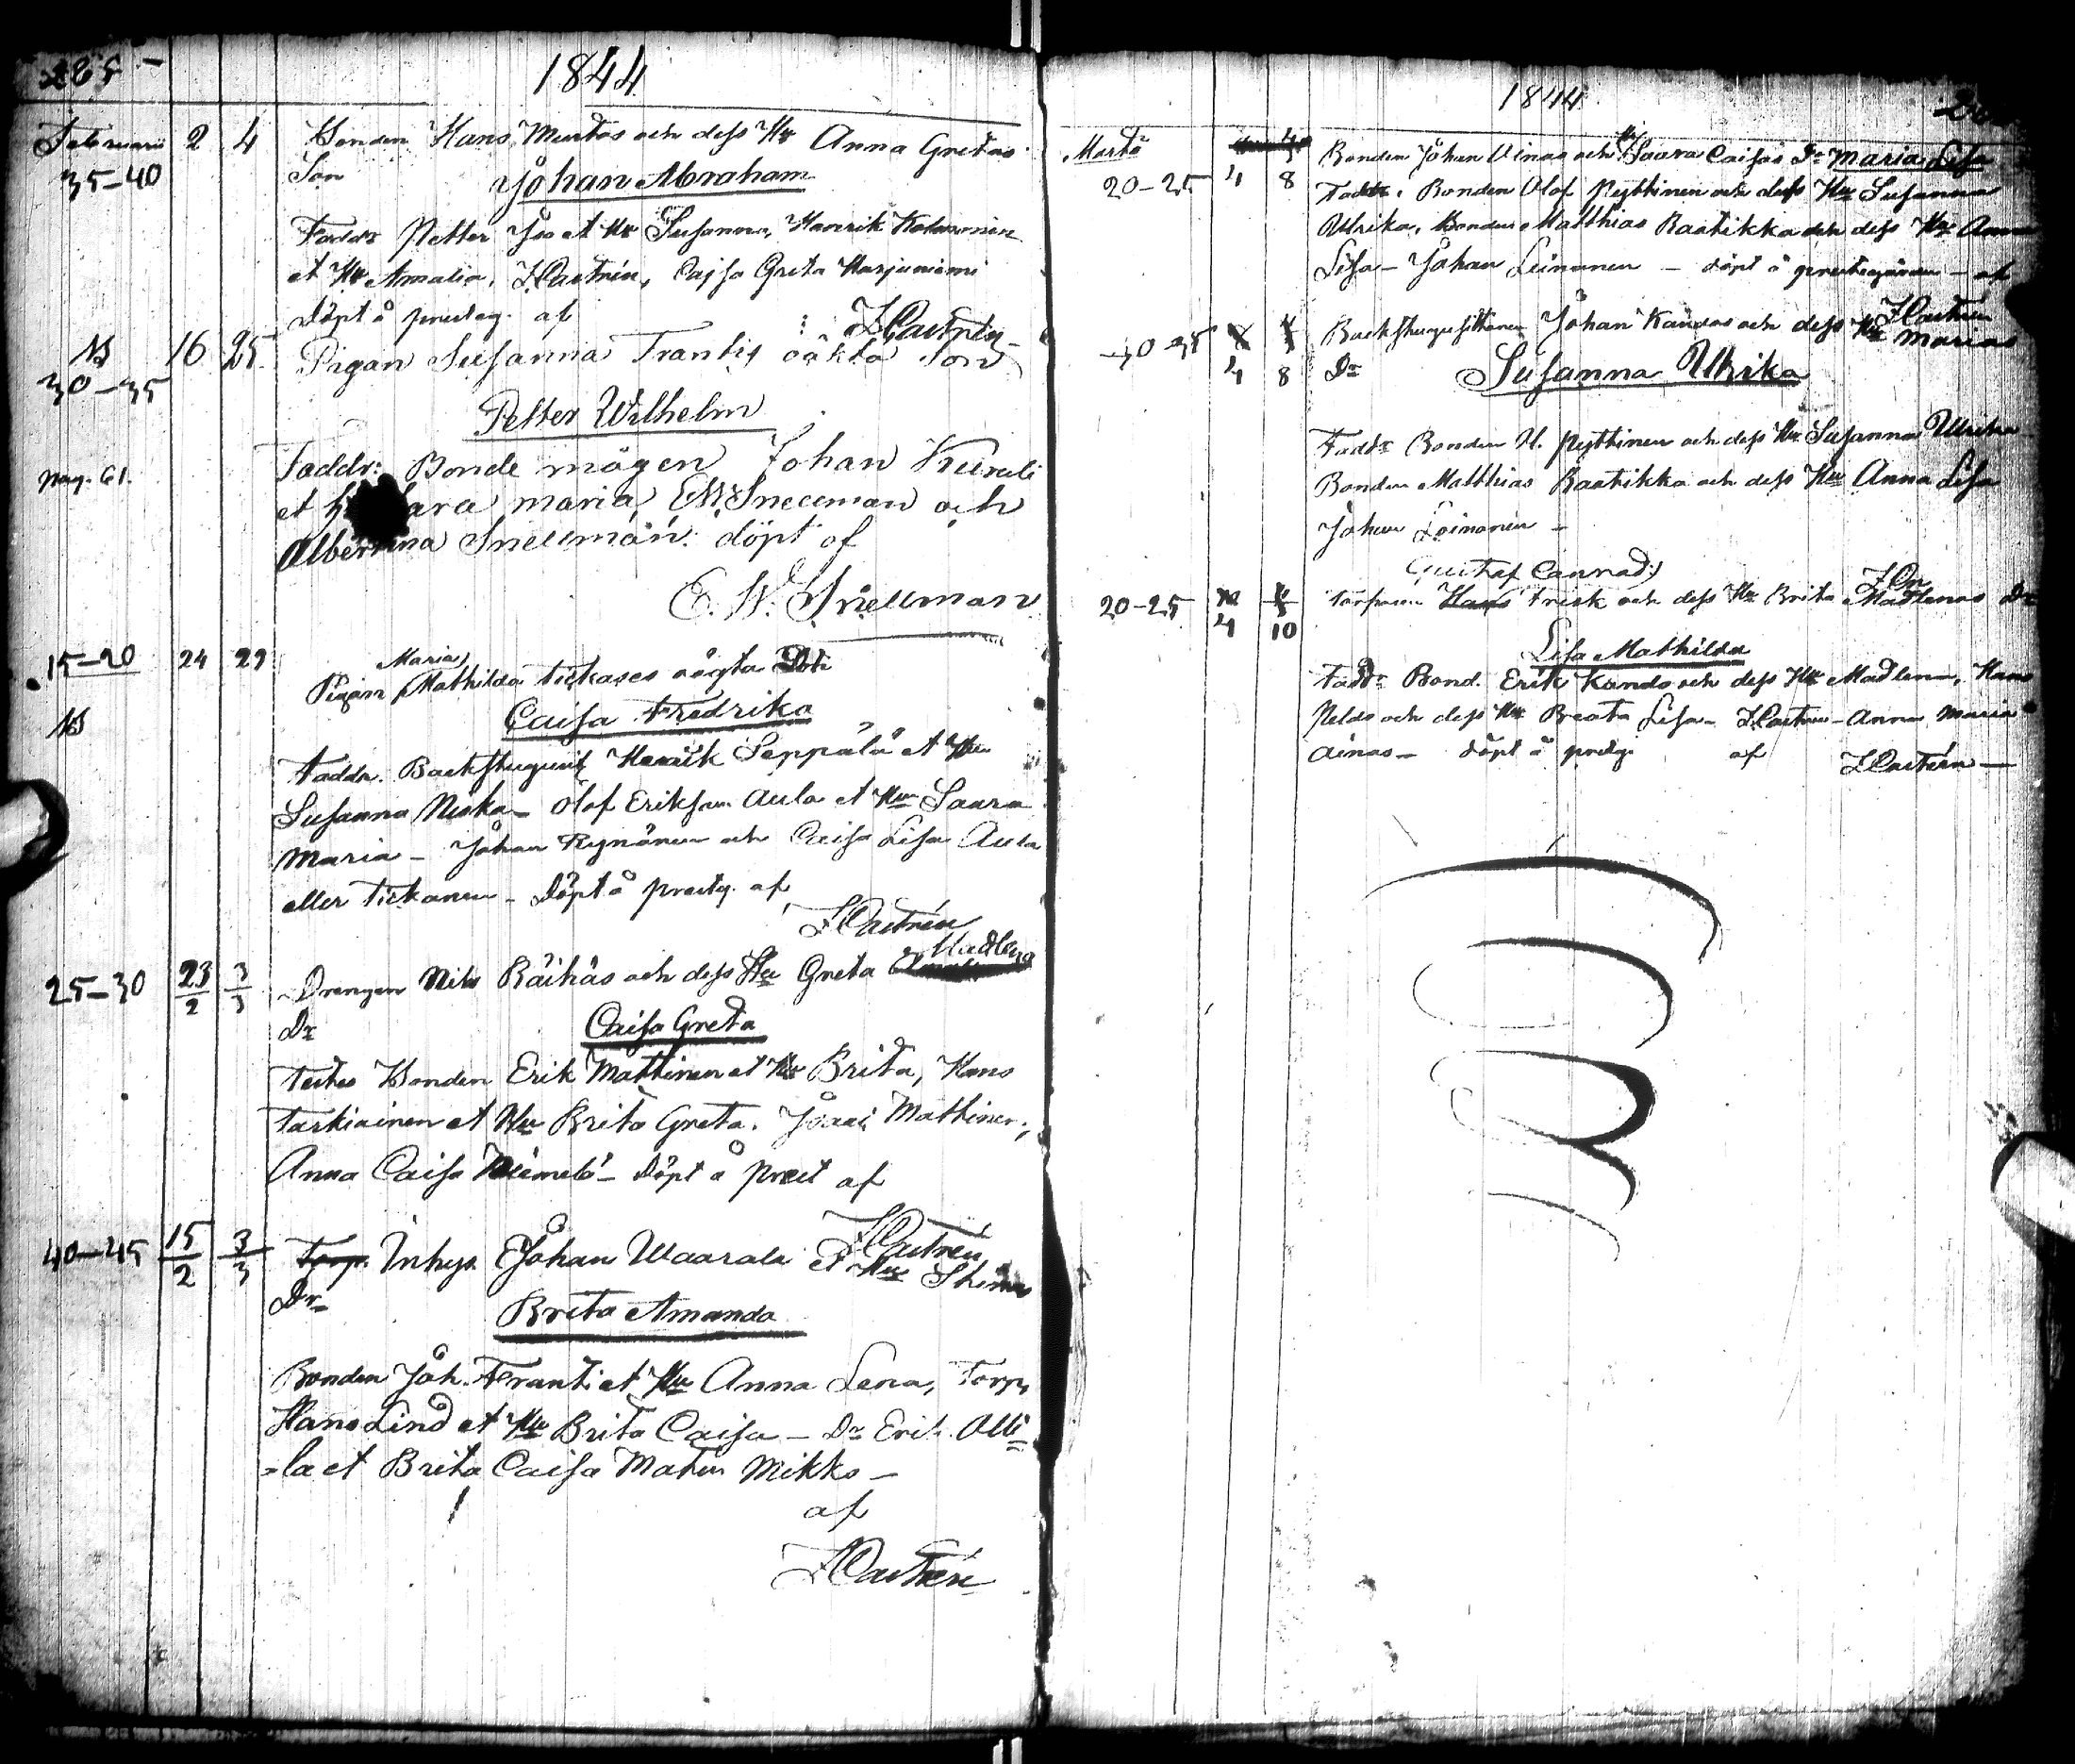 285
1844
Februarii 2 4 Bonden Hans Murtos och dess Hu Anna Gretas
35-40 Son Johan Abraham
Faddr Petter Jss et Hu Susanna, Henrik
et Hu Amalia, FCastrén, Cajsa Greta Karjuniemi
Döpt å prestg. af FCastrén
NB 16 25. Pigan Susanna Trantis oäkta Son
30-35
Petter Wilhelm
Faddr: Bonde mågen Johan Kurali
pag. 61.
et maria, EW. Snellman och
Albertina Snellman: döpt af
E. W. Snellman
Maria
15-20 24 29 Pigan Mathilda Tickases oägta Dotr
Caisa Fredrika
NB
Faddr. Backstugusitt Henrik Seppälä et Hu
Susanna Niska - Olof Eriksson Aula et Hu Saara
Maria - Johan Rynönen och Caisa Lisa Aula
eller Tickanen - Döpt å prestg. af
FCastrén
Madlena
25-30 23/2 3/3 Drengen Nils Räihäs och dess Hu Greta
Dr Caisa Greta
Testes Bonden Erik Mattinen et Hu Brita, Hans
Tarkiainen et Hu Brita Greta. Isaac Mattinen,
Anna Caisa - Döpt å prest af
FCastrén
40-45 15/2 3/3 Torp. Inhys. Johan Waarala et Hu
Dr Brita Amanda
Bonden Joh. Tranti et Hu Anna Lena, Torp.
Hans Lind et Hu Brita Caisa - Dr Erik Alli
=la et Brita Caisa Maten Mikko -
af
FCastrén
1844
Martii Bonden Johan Ainas och Hu Saara Caisas Dr Maria Lisa
20-25 4 8 Faddr. Bonden Olof Pyttinen och dess Hu Susanna
Ulrika, Bonden Matthias Raatikka och dess Hu Anna
Lisa - Johan Leinonen - döpt å prestegården - af
FCastrén
30-35 Backstugusittaren Johan Kandos och dess Hu Marias
4 8 Dr Susanna Ulrika
Faddr Bonden O. Pyttinen och dess Hu Susanna Ulrika
Bonden Matthias Raatikka och dess Hu Anna Lisa
Johan Leinonen -
FCn
Gustaf Conrad
20-25 Torparen Hans Frisk och dess Hu Brita Madlenas Dr
4 10
Lisa Mathilda
Faddr Bond. Erik Kando och dess Hu Madlena, Hans
Peldo och dess Hu Breata Lisa - FCastrén - Anna Maria
Ainas - döpt å prestg af FCastrén -